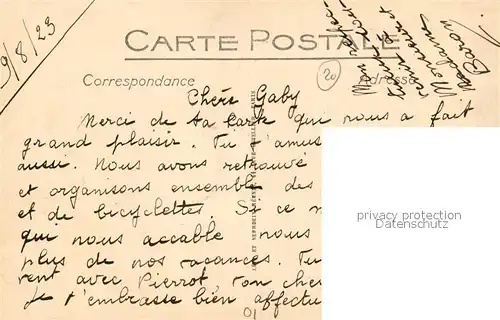 9/8/23
CARTE POSTALE
Correspondance
Adresse
20
Mon respec-
Monsieur et
Madame
Baron
Chère Gaby
Merci de ta carte qui nous a fait
grand plaisir. Tu t'amus
aussi. Nous avons retrouvé
et organisons ensemble des
et de bicyclettes. Si ce n
qui nous accable nous
plus de nos vacances. Tu
rent avec Pierrot, ton cher
Je t'embrasse bien affectu
privacy protection
Datenschutz